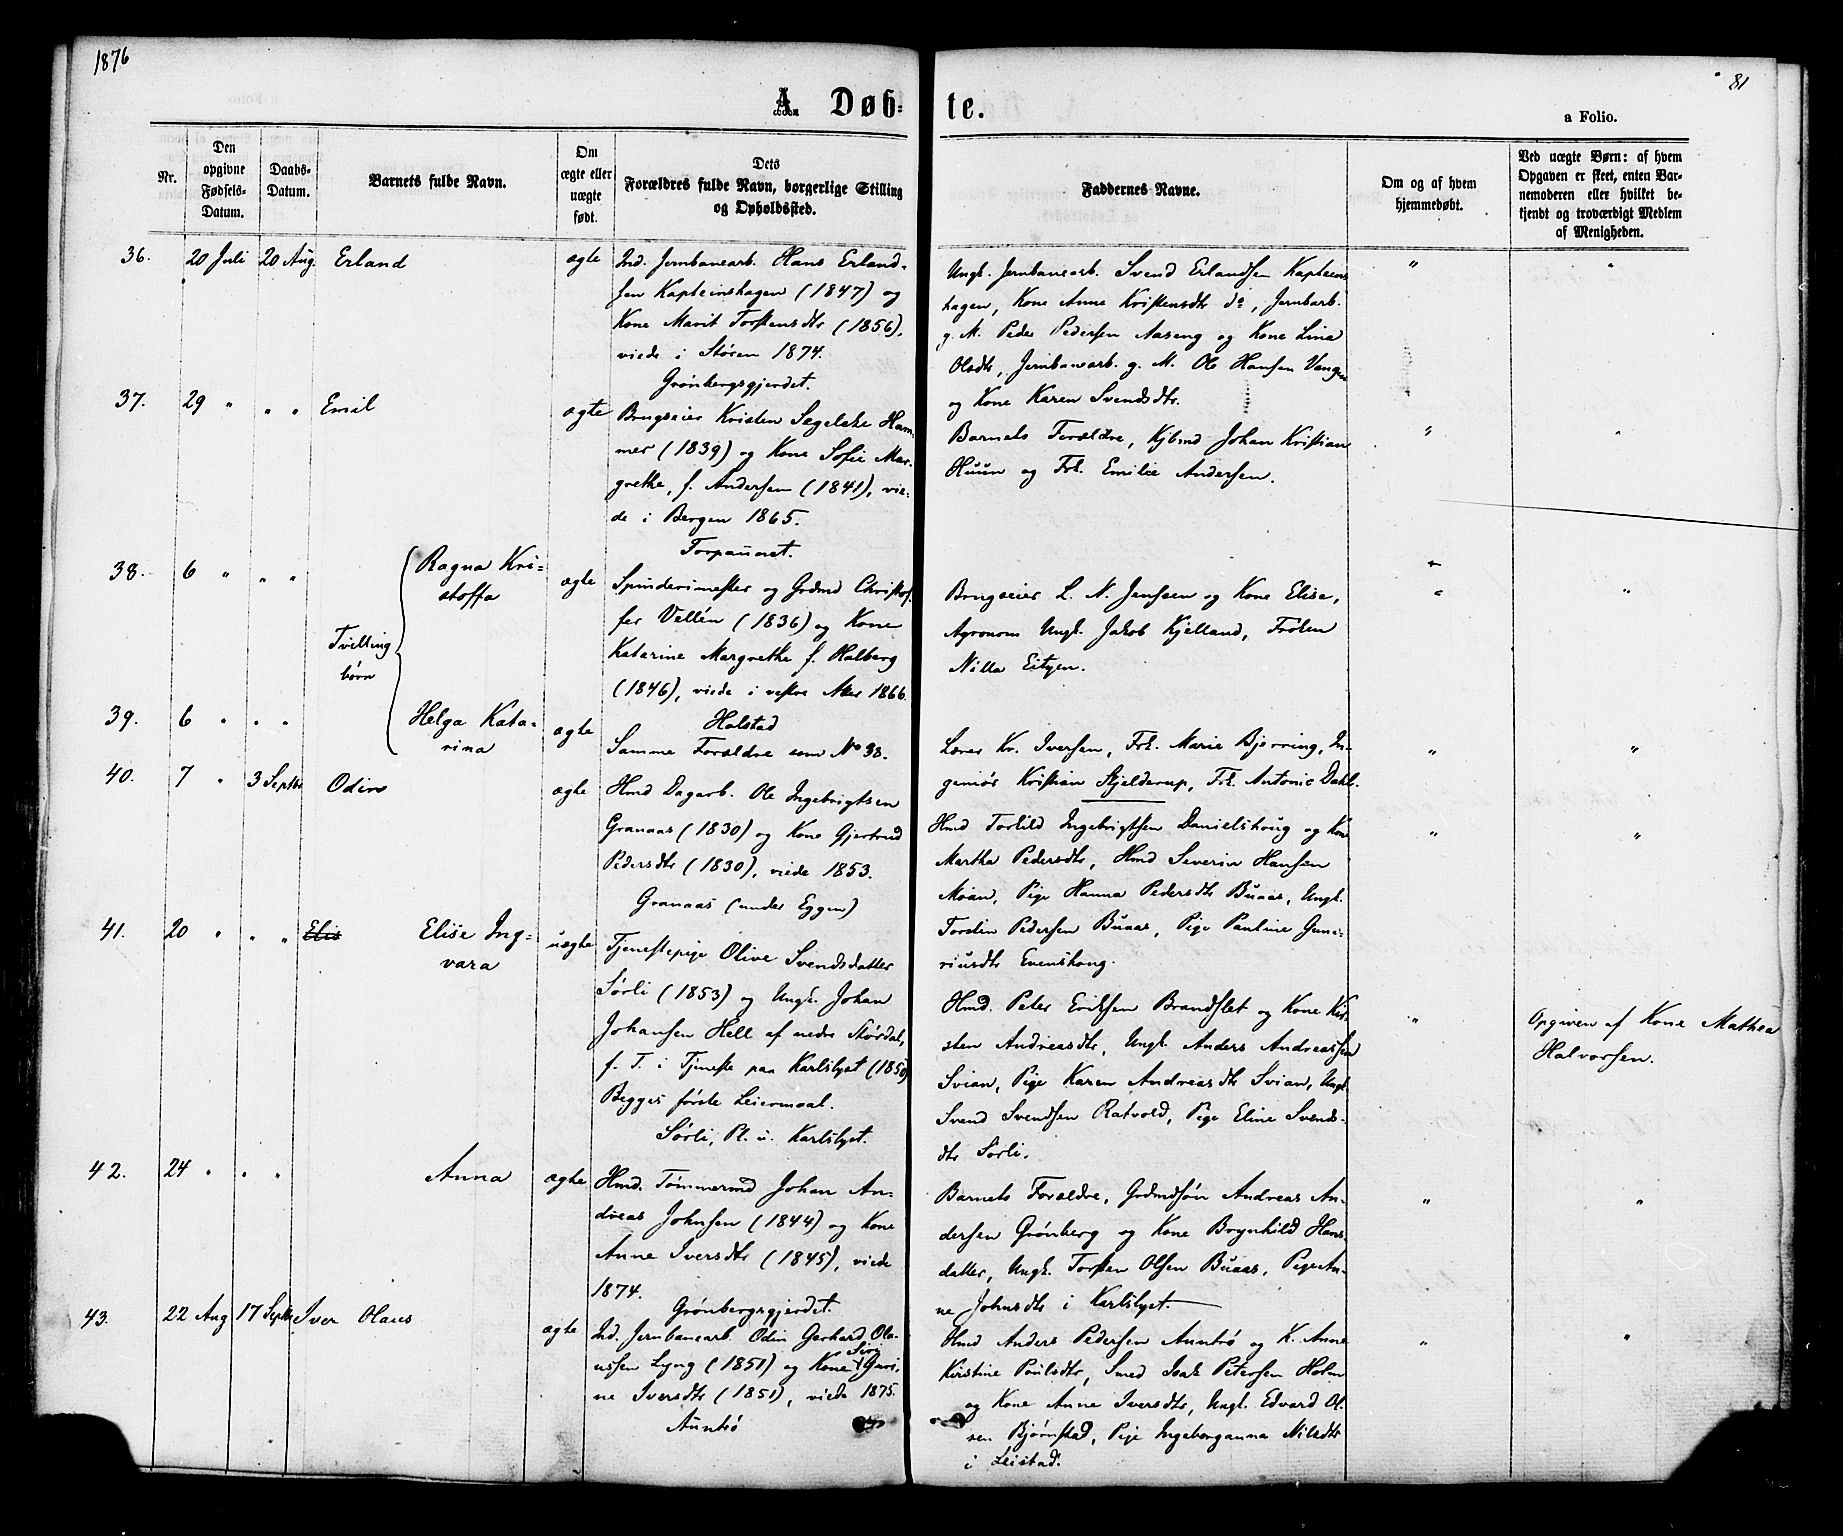 1876
81
A. Døb- te.
a Folio.
Nr.
Den opgivne Fødsels-Datum.
Daabs-Datum.
Barnets fulde Navn.
Om ægte eller uægte født.
Dets Forældres fulde Navn, borgerlige Stilling og Opholdssted.
Faddernes Navne.
Om og af hvem hjemmedøbt.
Ved uægte Børn: af hvem Opgaven er skeet, enten Barnemoderen eller hvilket bekjendt og troværdigt Medlem af Menigheden.
36. 20 Juli 20 Aug. Erland ægte
Ind. Jernbanearb. Hans Erland-
sen Kapteinshagen (1847) og
Kone Marit Torstensdtr (1856),
viede i Støren 1874.
Grönbergsgjerdet.
Ungk. Jernbanearb. Svend Erlandsen Kapteins
hagen, Kone Anne Kristensdtr do, Jernbarb.
g. M. Peder Pedersen Aaseng og Kone Lina
Olsdtr, Jernbanearb. g. M. Ole Hansen Vangen
og Kone Karen Svendsdtr.
" "
37. 29 " " " Emil ægte
Brugseier Kristen Segelcke Ham-
mer (1839) og Kone Sofie Mar-
grethe, f. Andersen (1841), vie-
de i Bergen 1865.
Torpaunet.
Barnets Forældre, Kjbmd Johan Kristian
Huun og Frk. Emilie Andersen.
" "
38. 6 " " " Tvilling
børn
Ragna Kri-
stoffa
ægte
Spinderimester og Grdmd Christof-
fer Vellén (1836) og Kone
Katarine Margrethe f. Halberg
(1846), viede i vestre Aker 1866.
Halstad
Brugseier L. N. Jenssen og Kone Elise,
Agronom Ungk. Jakob Kjelland, Frøken
Nilla
" "
39. 6 " " " Helga Kata-
rina
ægte
Samme Forældre som No 38.
Lærer Kr. Iversen, Frk. Marie Bjerring, In-
geniør Kristian Skjelderup, Frk. Antonie Dahl.
" "
40. 7 " 3 Septbr Odin ægte
Hmd Dagarb. Ole Ingebrigtsen
Granaas (1830) og Kone Gjertrud
Pedersdtr (1830), viede 1853.
Granaas (under Eggen)
Hmd Torkild Ingebrigtsen Danielshoug og Kone
Martha Pedersdtr, Hmd Severin Hansen
Moan, Pige Hanna Pedersdtr Buaas, Ungk.
Tordin Pedersen Buaas, Pige Pauline Gune-
riusdtr Evenshoug.
" "
41. 20 " " " Elis Elise Ing-
vara
uægte
Tjenestepige Olive Svendsdatter
Sørli (1853) og Ungk. Johan
Johansen Hell af nedre Størdal,
f. T. i Tjeneste paa Karlslyst (1850)
Begges første Leiermaal.
Sørli, Pl. u. Karlslyst.
Hmd. Peter Eriksen Brandslet og Kone Kir-
sten Andreasdtr, Ungk. Anders Andreassen
Svian, Pige Karen Andreasdtr Svian, Ungk.
Svend Svendsen Ratvold, Pige Eline Svends-
dtr Sørli.
"
Opgiven af Kone Mathea
Halvorsen.
42. 24 " " " Anna ægte
Hmd. Tømmermd Johan An-
dreas Johnsen (1844) og Kone
Anne Iversdtr (1845), viede
1874.
Grönbergsgjerdet.
Barnets Forældre, Grdmdsøn Andreas An-
dersen Grönberg og Kone Brynhild Hans
datter, Ungk. Torsten Olsen Buaas, Pige An-
ne Johnsdtr i Karlslyst.
" "
43. 22 Aug 17 Septbr. Iver Olaus ægte
Ind. Jernbanearb. Odin Gerhard Ola-
ussen Lyng (1851) og Kone Siri Guri-
ne Iversdtr (1851), viede 1875.
Auntrø
Hmd Anders Pedersen Auntrø og K. Anne
Kirstine Poulsdtr, Smed Isak Petersen Holm
og Kone Anne Iversdtr, Ungk. Edvard Ol-
sen Bjørnstad, Pige Ingeborganna Nilsdtr
i Leistad.
" "